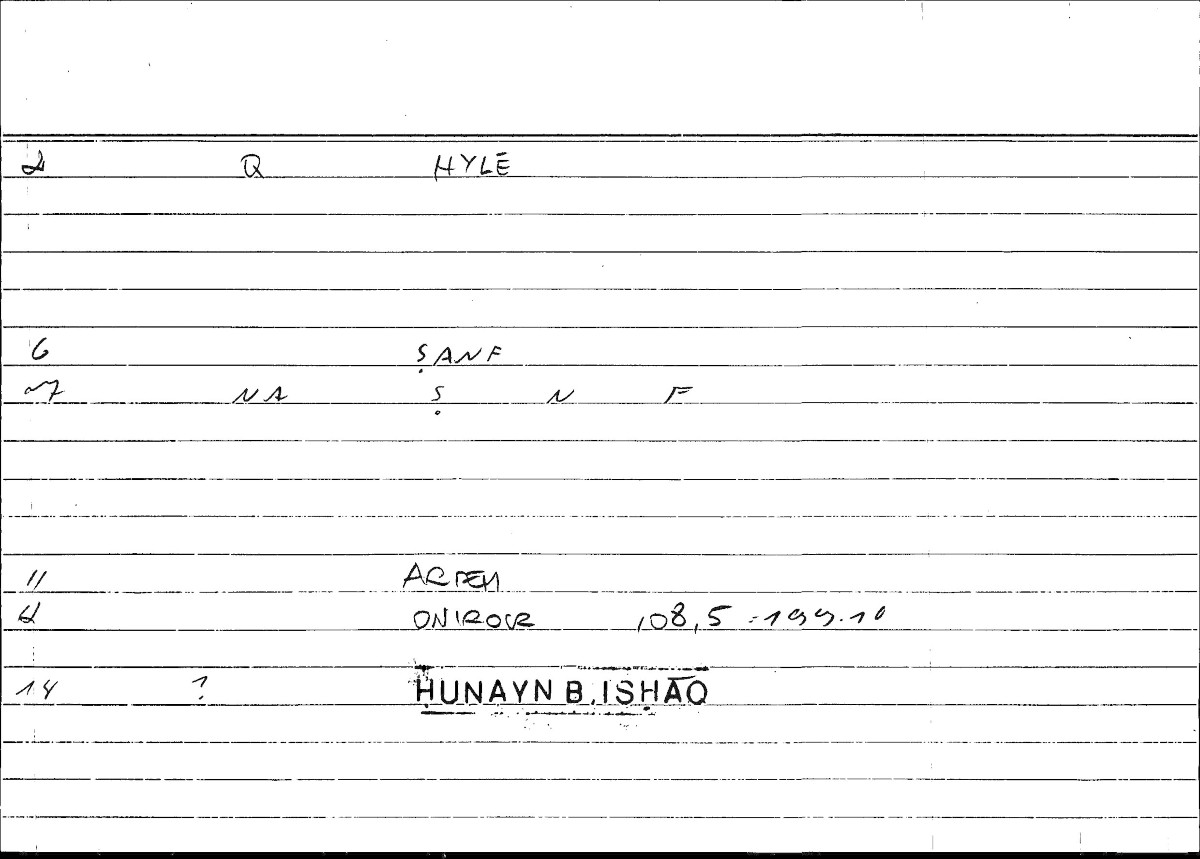 2 Q HYLĒ
6 ṢANF
7 NA Ṣ N F
11 ARTEM
12 ONIROCR 108,5 = 199.10
14 ? ḤUNAYN B. ISḤĀQ